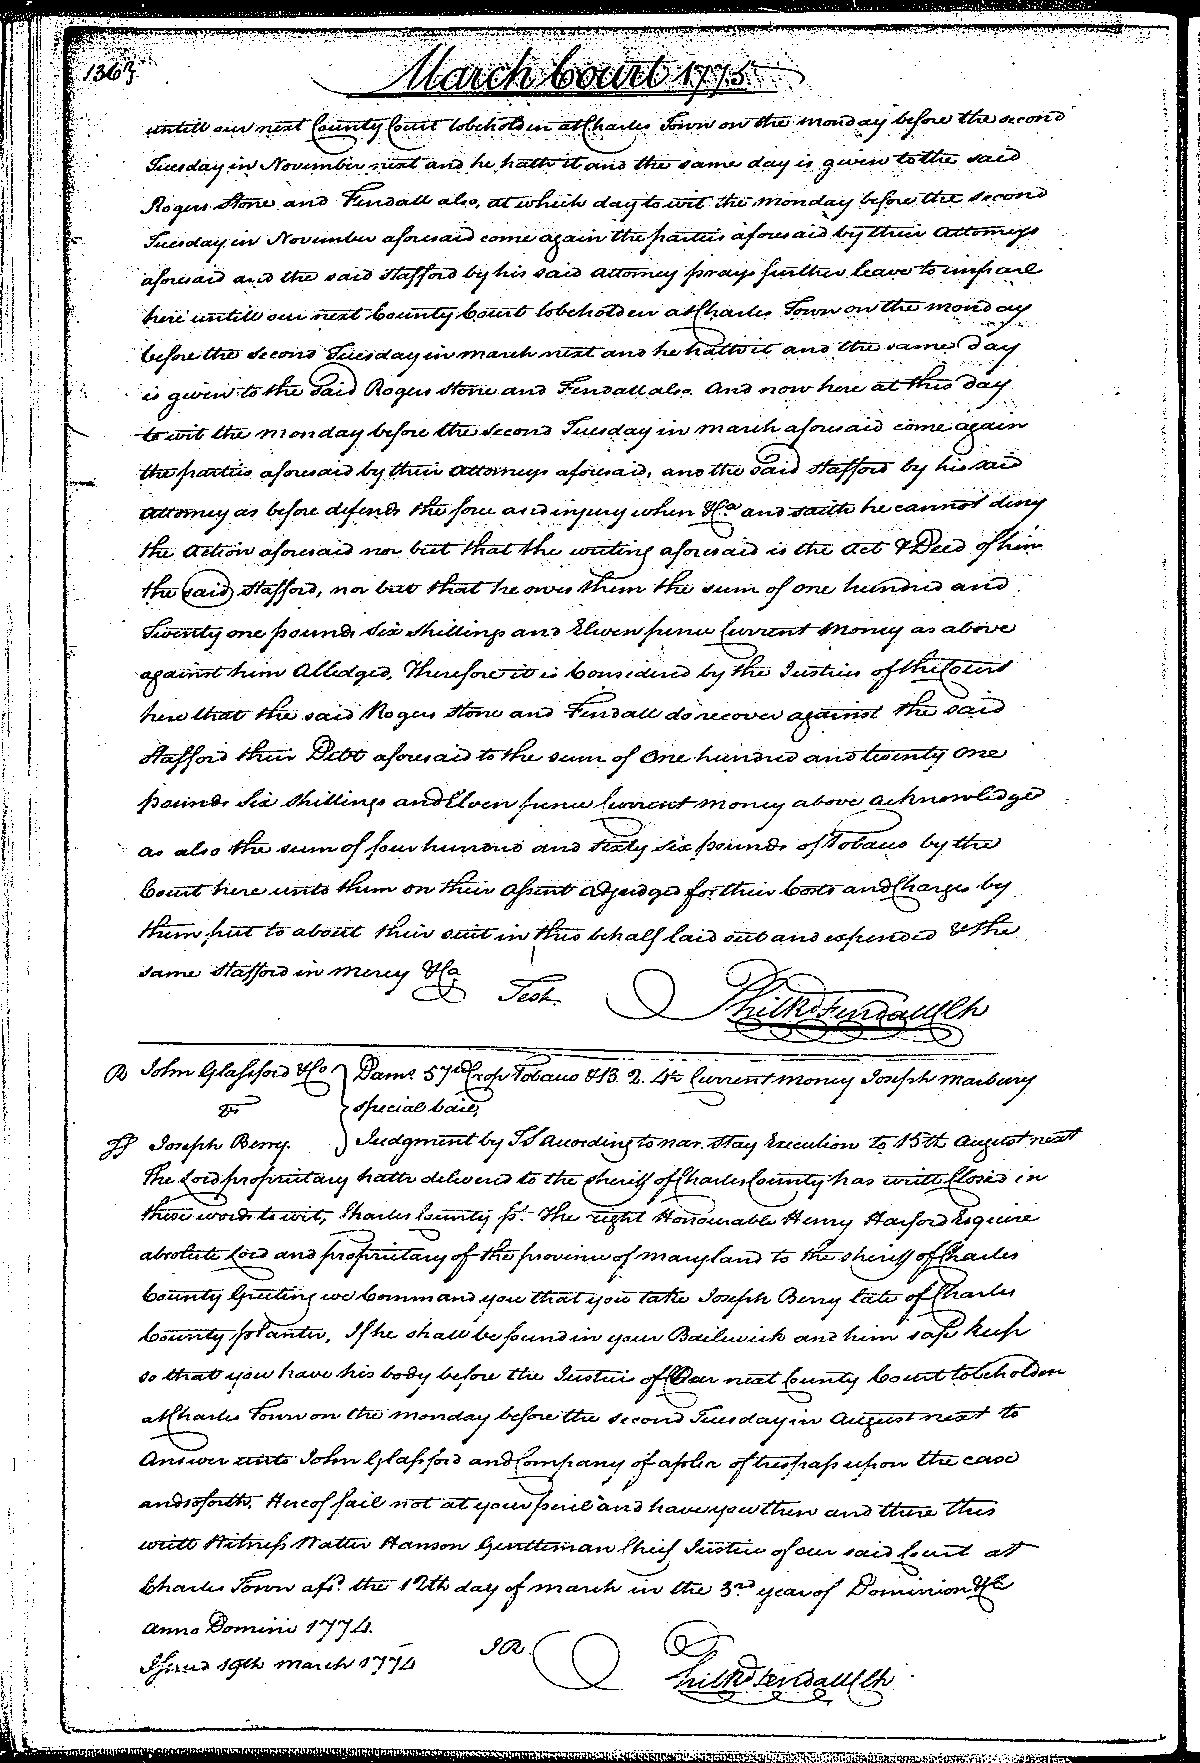 March Court 1775
untill our next County Court to be holden at Charles Town on the monday before the second
Tuesday in November next and he hath it and the same day is given to the said
Rogers Stone and Fendall also, at which day to wit the monday before the second
Tuesday in November aforesaid come again the parties aforesaid by their Attorneys
aforesaid and the said Stafford by his said attorney prays further leave to imparl
here untill our next County Court to be holden at Charles Town on the monday
before the second Tuesday in march next and he hath it and the same day
is given to the said Rogers Stone and Fendall also. And now here at this day
to wit the monday before the second Tuesday in march aforesaid come again
the parties aforesaid by their Attorneys aforesaid, and the said Stafford by his said
Attorney as before defends the force and injury when &Ca and saith he cannot deny
the Action aforesaid nor but that the writing aforesaid is the Act & Deed of him
the said Stafford, nor but that he owes them the sum of one hundred and
Twenty one pounds Six Shillings and Eleven pence Current Money as above
against him Alledged, Therefore it is Considered by the Justices of the Court
here that the said Rogers Stone and Fendall do recover against the said
Stafford their Debt aforesaid to the sum of One hundred and twenty one
pounds Six Shillings and Elven pence Current money above acknowledged
as also the sum of four hundred and sixty six pounds of Tobacco by the
Court here unto them on their assent adjudged for their Costs and Charges by
them put to about their suit in this behalf laid out and expended & the
same Stafford in mercy &Ca
Test. Phil Rd Fendall Clk
R John Glassford & Co } Dams. Crop Tobacco & 13. 2. 4½ Current money Joseph Marbury
vs } special bail,
Joseph Berry. } Judgment by according to nar. Stay Execution to 15th August next
The Lord proprietary hath delivered to the sheriff of Charles County has writt Closed in
these words to wit, Charles County ss. The right Honourable Henry Harford Esquire
absolute Lord and proprietary of the province of maryland to the sheriff of Charles
County Greeting we Command you that you take Joseph Berry late of Charles
County planter, If he shall be found in your Bailiwick and him safe keep
so that you have his body before the Justices of Our next County Court to be holden
at Charles Town on the monday before the second Tuesday in August next to
Answer unto John Glassford and Company of a plea of trespass upon the case
and so forth, Hereof fail not at your peril and have you then and there this
writt Witness Walter Hanson Gentleman Chief Justice of our said Court at
Charles Town afsd. the 12th day of march in the 3rd year of Dominion &Ca
Anno Domini 1774.
Issued 19th march 1774 J R. Phil Rd Fendall Clk